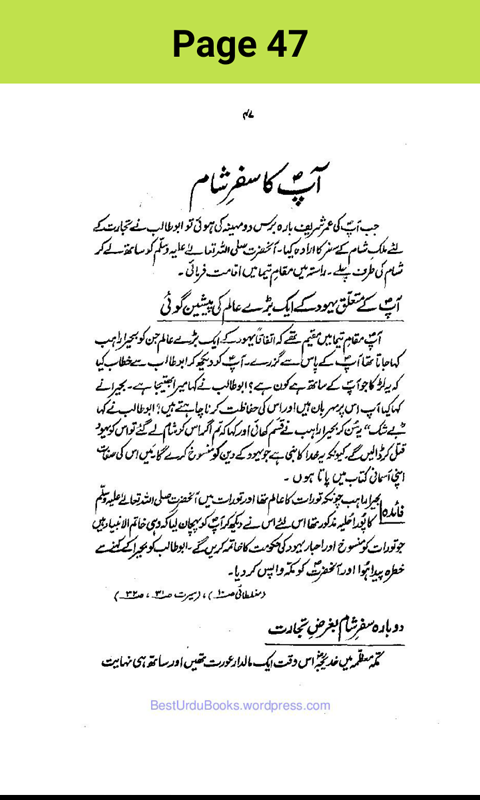 Page 47
۴۷
آپؐ کا سفرِ شام
جب آپؐ کی عمر شریف بارہ برس دو مہینہ کی ہوئی تو ابو طالب نے تجارت کے
لئے ملکِ شام کے سفر کا ارادہ کیا۔ آنحضرت صلی اللہ تعالےٰ علیہ وسلم کو ساتھ لے کر
شام کی طرف چلے۔ راستہ میں مقامِ تیما میں اقامت فرمائی۔
آپؐ کے متعلق یہود کے ایک بڑے عالم کی پیشین گوئی
آپؐ مقام تیما میں مقیم تھے کہ اتفاقاً یہود کے ایک بڑے عالم جن کو بحیرا راہب
کہا جاتا تھا آپؐ کے پاس سے گزرے۔ آپؐ کو دیکھ کر ابو طالب سے خطاب کیا
کہ یہ لڑکا جو آپؐ کے ساتھ ہے کون ہے؟ ابو طالب نے کہا میرا بھتیجا ہے۔ بحیرا نے
کہا کیا آپ اس پر مہربان ہیں اور اس کی حفاظت کرنا چاہتے ہیں؟ ابو طالب نے کہا
"بے شک" یہ سُن کر بحیرا راہب نے قسم کھائی اور کہا کہ تم اگر اس کو شام لے گئے تو اس کو یہود
قتل کر ڈالیں گے۔ کیونکہ یہ خدا کا نبی ہے جو یہود کے دین کو منسوخ کرے گا۔ میں اس کی صفات
اپنی آسمانی کتاب میں پاتا ہوں۔
فائدہ بحیرا راہب چونکہ تورات کا عالم تھا اور تورات میں آنحضرت صلی اللہ تعالےٰ علیہ وسلم
کا پُورا حُلیہ مذکور تھا اس لئے اس نے دیکھ کر آپؐ کو پہچان لیا کہ وہی خاتم الانبیاء ہیں
جو تورات کو منسوخ اور احبار یہود کی حکومت کا خاتمہ کریں گے۔ ابو طالب کو بحیرا کے کہنے سے
خطرہ پیدا ہُوا اور آنحضرتؐ کو مکہ واپس کر دیا۔
(مغلطائی صـ۱۰)، (سیرت صـ۳۱، صـ۳۲)
دوبارہ سفرِ شام بغرضِ تجارت
مکہ معظمہ میں خدیجہؓ اس وقت ایک مالدار عورت تھیں اور ساتھ ہی نہایت
BestUrduBooks.wordpress.com